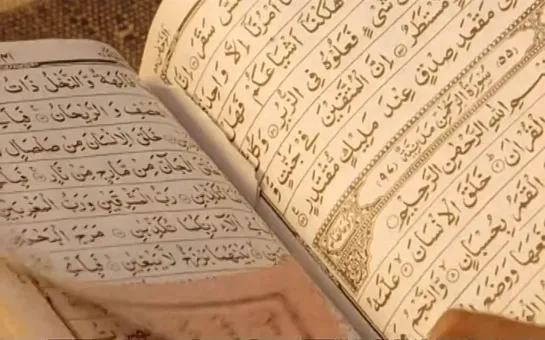 سَقَرَ ۝ إِنَّا
أَمْرُنَا إِلَّا وَاحِدَ
أَهْلَكْنَا أَشْيَاعَكُمْ فَهَلْ
فَعَلُوهُ فِي الزُّبُرِ ۝ وَكُلُّ
مُسْتَطَرٌ ۝ إِنَّ الْمُتَّقِينَ فِي جَنّٰتٍ وَ
مَقْعَدِ صِدْقٍ عِنْدَ مَلِيكٍ مُقْتَدِرٍ ۝
(٥٥) سُورَةُ الرَّحْمٰنِ مَدَنِيَّةٌ
اللّٰهِ الرَّحْمٰنِ الرَّحِيمِ
الْقُرْآنَ ۝ خَلَقَ الْإِنْسَانَ ۝ عَلَّمَهُ
بِحُسْبَانٍ ۝ وَالنَّجْمُ
رَفَعَهَا وَوَضَعَ
فَاكِهَةٌ وَالنَّخْلُ ذَاتُ
الْعَصْفِ وَالرَّيْحَانُ ۝ فَبِأَيِّ
خَلَقَ الْإِنْسَانَ مِنْ صَلْصَالٍ
الْجَانَّ مِنْ مَارِجٍ مِنْ نَارٍ ۝ فَبِأَيِّ
تُكَذِّبٰنِ ۝ رَبُّ الْمَشْرِقَيْنِ وَرَبُّ الْمَغْرِبَيْنِ
آلَاءِ رَبِّكُمَا تُكَذِّبٰنِ ۝ مَرَجَ الْبَحْرَيْنِ
بَيْنَهُمَا بَرْزَخٌ لَا يَبْغِيٰنِ ۝ فَبِأَيِّ